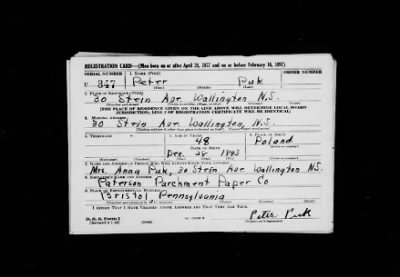 REGISTRATION CARD—(Men born on or after April 28, 1877 and on or before February 16, 1897)
SERIAL NUMBER 1. NAME (Print) ORDER NUMBER
U 347 Peter Puk
2. PLACE OF RESIDENCE (Print)
30 Stein Ave. Wallington N.J.
[THE PLACE OF RESIDENCE GIVEN ON THE LINE ABOVE WILL DETERMINE LOCAL BOARD
JURISDICTION; LINE 2 OF REGISTRATION CERTIFICATE WILL BE IDENTICAL]
3. MAILING ADDRESS
30 Stein Ave Wallington, N.J.
4. TELEPHONE 5. AGE IN YEARS 6. PLACE OF BIRTH
48 Poland
DATE OF BIRTH
Dec. 1893
7. NAME AND ADDRESS OF PERSON WHO WILL ALWAYS KNOW YOUR ADDRESS
Mrs. Anna Puk, 30 Stein Ave Wallington N.J.
8. EMPLOYER'S NAME AND ADDRESS
Paterson Parchment Paper Co
9. PLACE OF EMPLOYMENT OR BUSINESS
Bristol Pennsylvania
I AFFIRM THAT I HAVE VERIFIED ABOVE ANSWERS AND THAT THEY ARE TRUE.
D. S. S. Form 1
Peter Puk